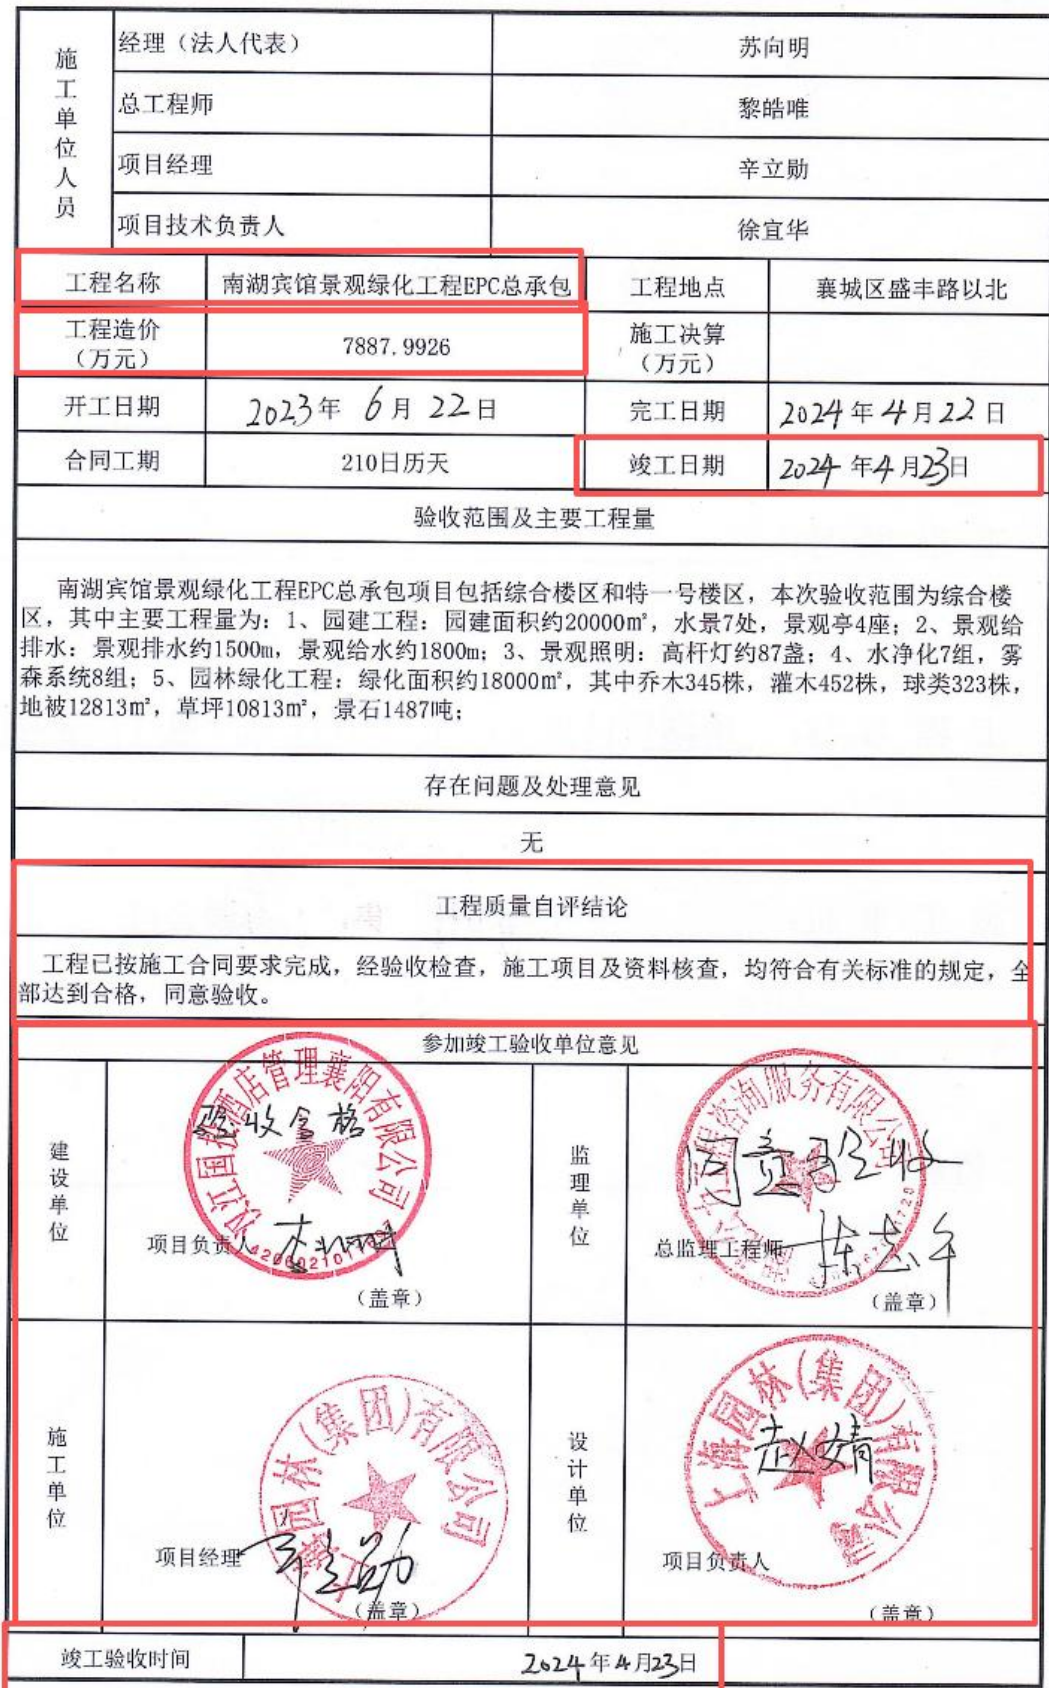 施工单位人员
经理（法人代表） 苏向明
总工程师 黎皓唯
项目经理 辛立勋
项目技术负责人 徐宜华
工程名称 南湖宾馆景观绿化工程EPC总承包 工程地点 襄城区盛丰路以北
工程造价（万元） 7887.9926 施工决算（万元）
开工日期 2023年 6月 22日 完工日期 2024年4月22日
合同工期 210日历天 竣工日期 2024年4月23日
验收范围及主要工程量
南湖宾馆景观绿化工程EPC总承包项目包括综合楼区和特一号楼区，本次验收范围为综合楼
区，其中主要工程量为：1、园建工程：园建面积约20000㎡，水景7处，景观亭4座；2、景观给
排水：景观排水约1500m，景观给水约1800m；3、景观照明：高杆灯约87盏；4、水净化7组，雾
森系统8组；5、园林绿化工程：绿化面积约18000㎡，其中乔木345株，灌木452株，球类323株，
地被12813㎡，草坪10813㎡，景石1487吨；
存在问题及处理意见
无
工程质量自评结论
工程已按施工合同要求完成，经验收检查，施工项目及资料核查，均符合有关标准的规定，全
部达到合格，同意验收。
参加竣工验收单位意见
建设单位
汉江国投酒店管理襄阳有限公司
验收合格
项目负责人
（盖章）
监理单位
工程咨询服务有限公司
同意验收
总监理工程师
（盖章）
施工单位
上海园林(集团)有限公司
项目经理 辛立勋
（盖章）
设计单位
上海园林(集团)有限公司
赵婧
项目负责人
（盖章）
竣工验收时间 2024年4月23日